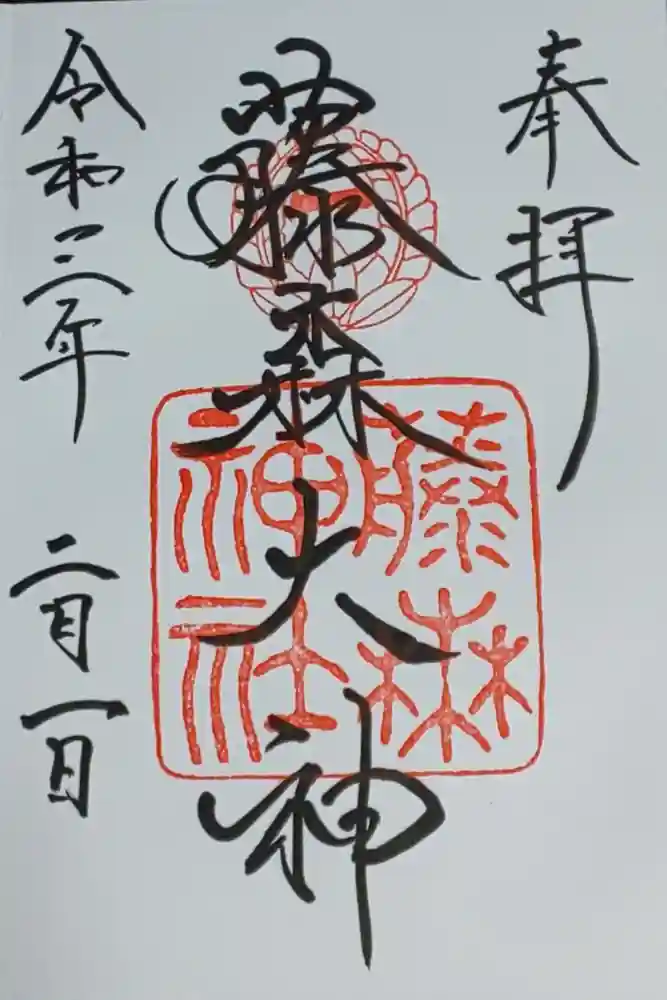 奉拝
藤森大神
藤森
神社
令和三年 二月一日